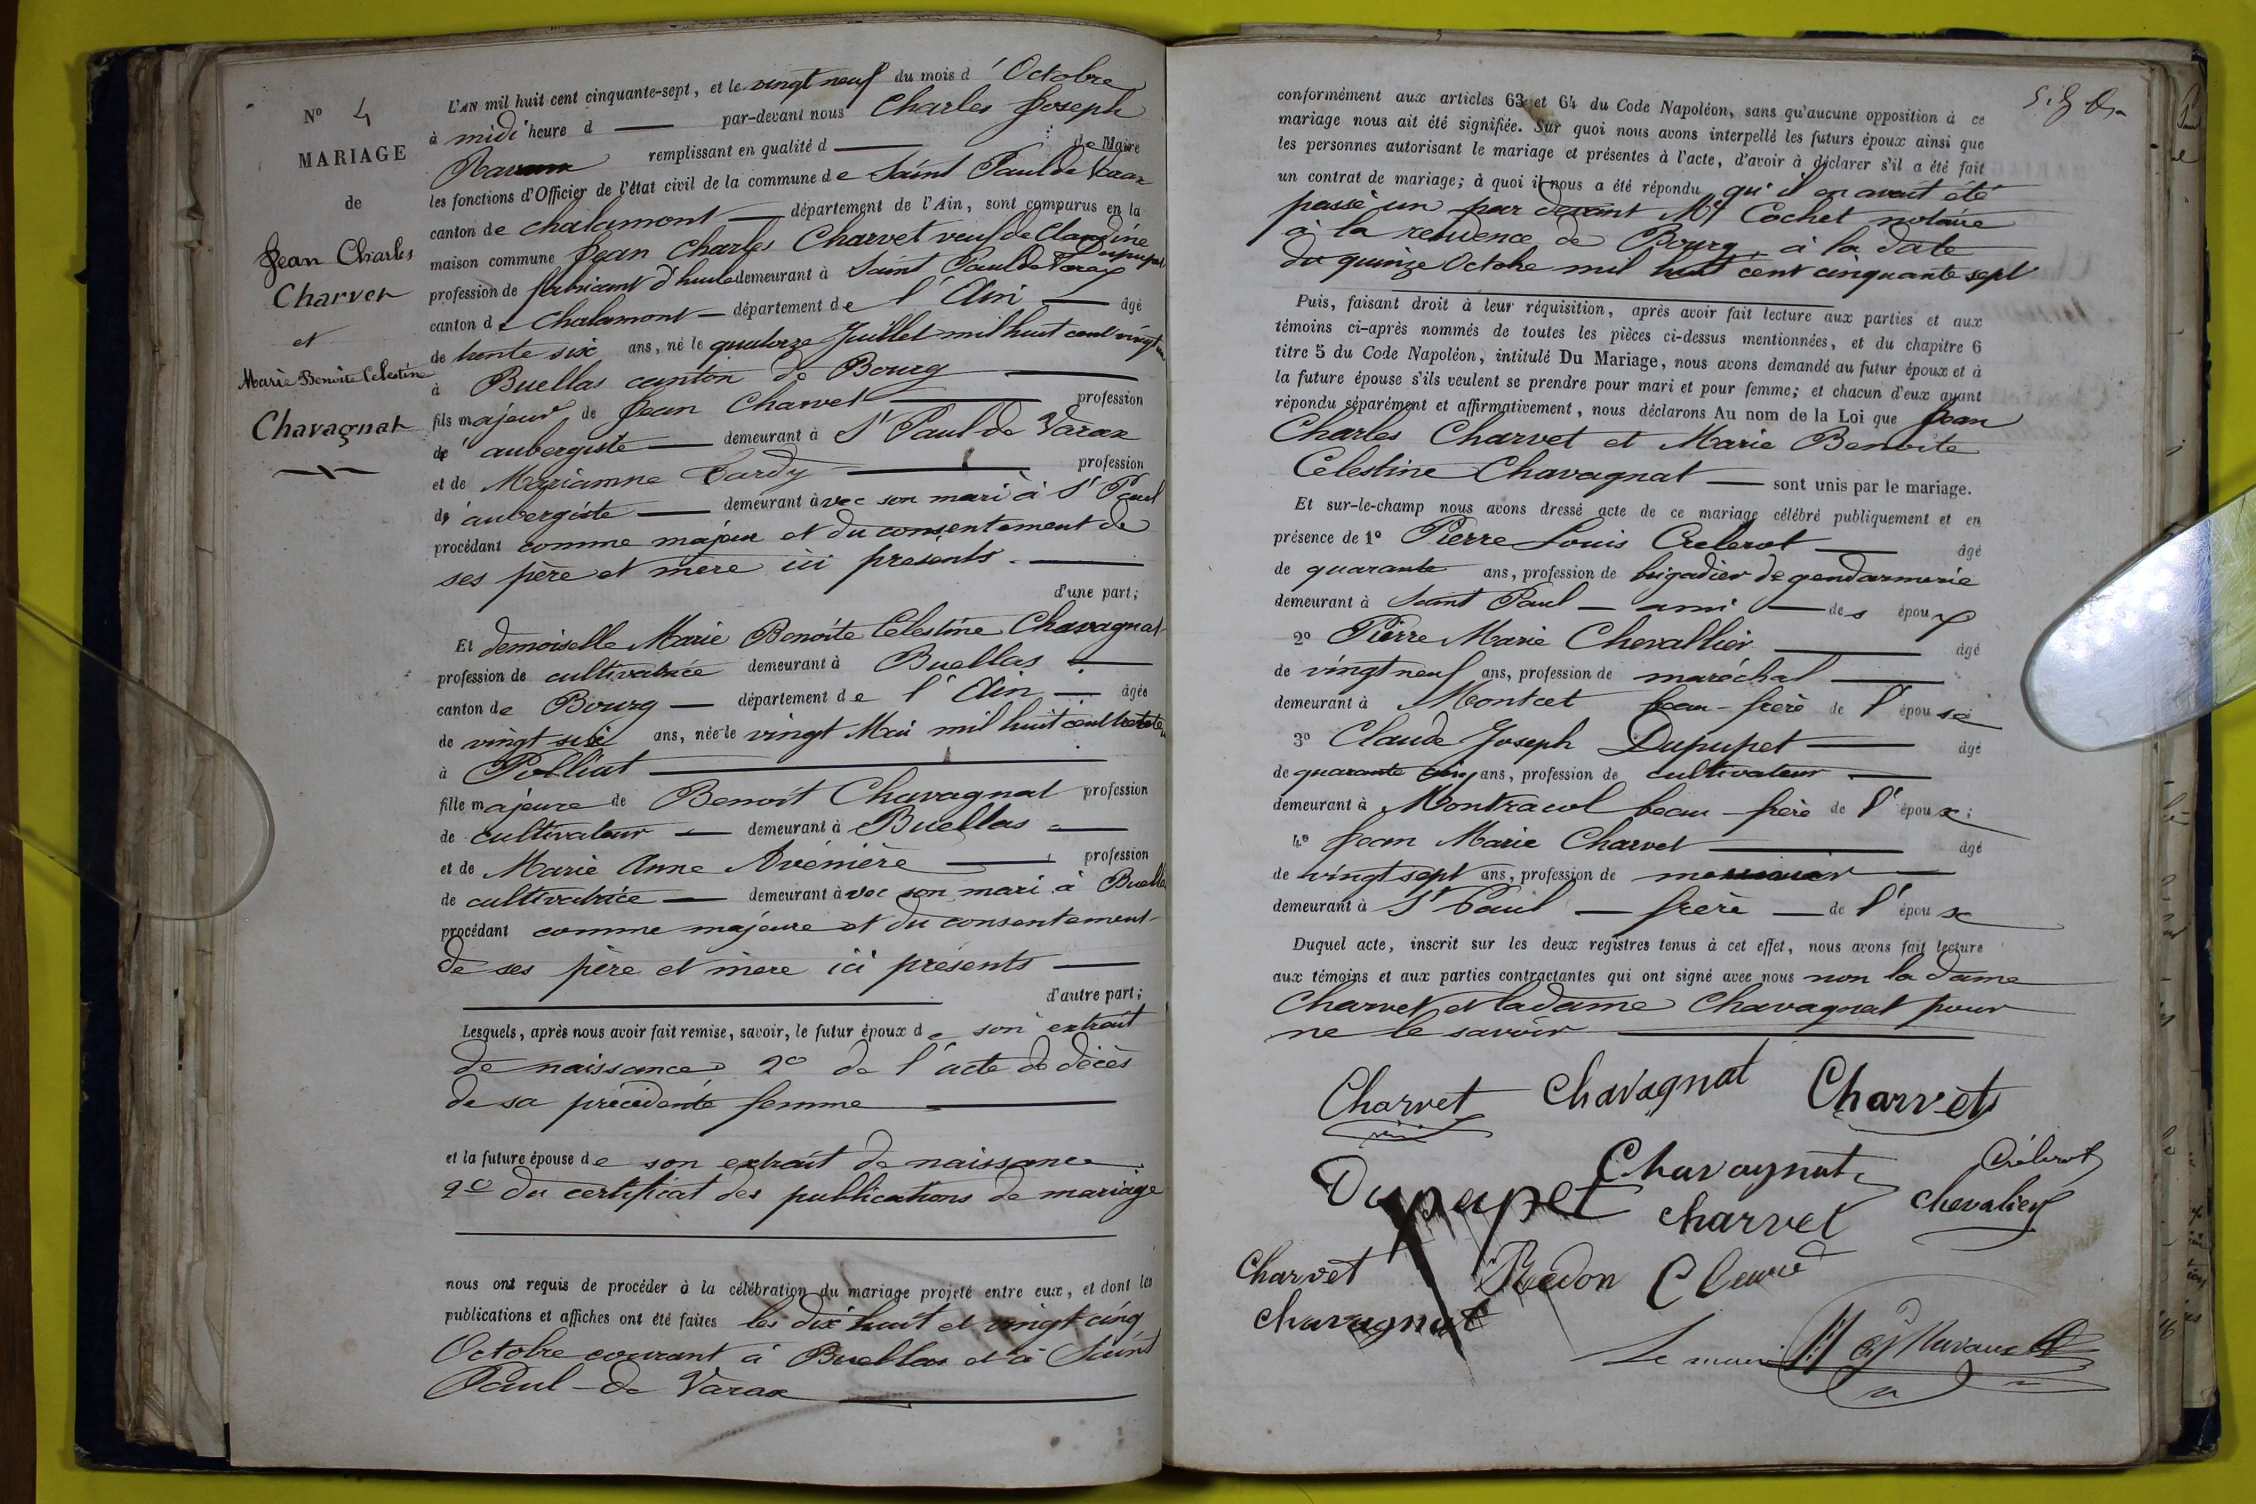 Nº 4
MARIAGE
de
Jean Charles
Charvet
et
Marie Benoite Celestine
Chavagnat
L'AN mil huit cent cinquante-sept, et le vingt neuf du mois d'Octobre
à midi heure d — par-devant nous Charles Joseph
remplissant en qualité d — de Maire
les fonctions d'Officier de l'état civil de la commune de Saint Paul de Varax
canton de chalamont — département de l'Ain, sont comparus en la
maison commune Jean Charles Charvet veuf de Claudine Dupupet
profession de fabricant d'huile demeurant à Saint Paul de Varax
canton de Chalamont — département de l'Ain — âgé
de trente six ans, né le quatorze Juillet mil huit cent vingt un
à Buellas canton de Bourg
fils majeur de Jean Charvet profession
d'aubergiste — demeurant à St Paul de Varax
et de Marianne Tardy profession
d'aubergiste — demeurant avec son mari à St Paul
procédant comme majeur et du consentement de
ses père et mère ici presents.
d'une part;
Et demoiselle Marie Benoite Celestine Chavagnat
profession de cultivatrice demeurant à Buellas
canton de Bourg — département de l'Ain — âgée
de vingt six ans, née le vingt Mai mil huit cent trente un
à Polliat
fille majeure de Benoit Chavagnat profession
de cultivateur — demeurant à Buellas
et de Marie Anne Avénière profession
de cultivatrice — demeurant avec son mari à Buellas
procédant comme majeure et du consentement
de ses père et mère ici présents
d'autre part;
Lesquels, après nous avoir fait remise, savoir, le futur époux de son extrait
de naissance 2º de l'acte de décès
de sa précédente femme
et la future épouse de son extrait de naissance
2º du certificat des publications de mariage
nous ont requis de procéder à la célébration du mariage projeté entre eux, et dont les
publications et affiches ont été faites les dix huit et vingt cinq
Octobre courant à Buellas et à Saint
Paul-de Varax
conformément aux articles 63 et 64 du Code Napoléon, sans qu'aucune opposition à ce
mariage nous ait été signifiée. Sur quoi nous avons interpellé les futurs époux ainsi que
les personnes autorisant le mariage et présentes à l'acte, d'avoir à déclarer s'il a été fait
un contrat de mariage; à quoi il nous a été répondu qu'il en avait été
passé un par devant Me Cochet notaire
à la residence de Bourg, à la date
du quinze Octobre mil huit cent cinquante sept
Puis, faisant droit à leur réquisition, après avoir fait lecture aux parties et aux
témoins ci-après nommés de toutes les pièces ci-dessus mentionnées, et du chapitre 6
titre 5 du Code Napoléon, intitulé Du Mariage, nous avons demandé au futur époux et à
la future épouse s'ils veulent se prendre pour mari et pour femme; et chacun d'eux ayant
répondu séparément et affirmativement, nous déclarons Au nom de la Loi que Jean
Charles Charvet et Marie Benoite
Celestine Chavagnat — sont unis par le mariage.
Et sur-le-champ nous avons dressé acte de ce mariage célébré publiquement et en
présence de 1º Pierre Louis Crelerot âgé
de quarante ans, profession de brigadier de gendarmerie
demeurant à Saint Paul — ami — des époux
2º Pierre Marie Chevallier âgé
de vingt neuf ans, profession de maréchal
demeurant à Montcet beau-frère de l'épouse
3º Claude Joseph Dupupet âgé
de quarante cinq ans, profession de cultivateur
demeurant à Montracol beau-frère de l'époux;
4º Jean Marie Charvet âgé
de vingt sept ans, profession de
demeurant à St Paul — frère — de l'époux
Duquel acte, inscrit sur les deux registres tenus à cet effet, nous avons fait lecture
aux témoins et aux parties contractantes qui ont signé avec nous non la dame
Charvet et la dame Chavagnat pour
ne le savoir
Charvet Chavagnat Charvet
Dupupet Chavagnat Crélerot
Charvet Chevalier
Charvet Redon
Chavagnat
Le maire